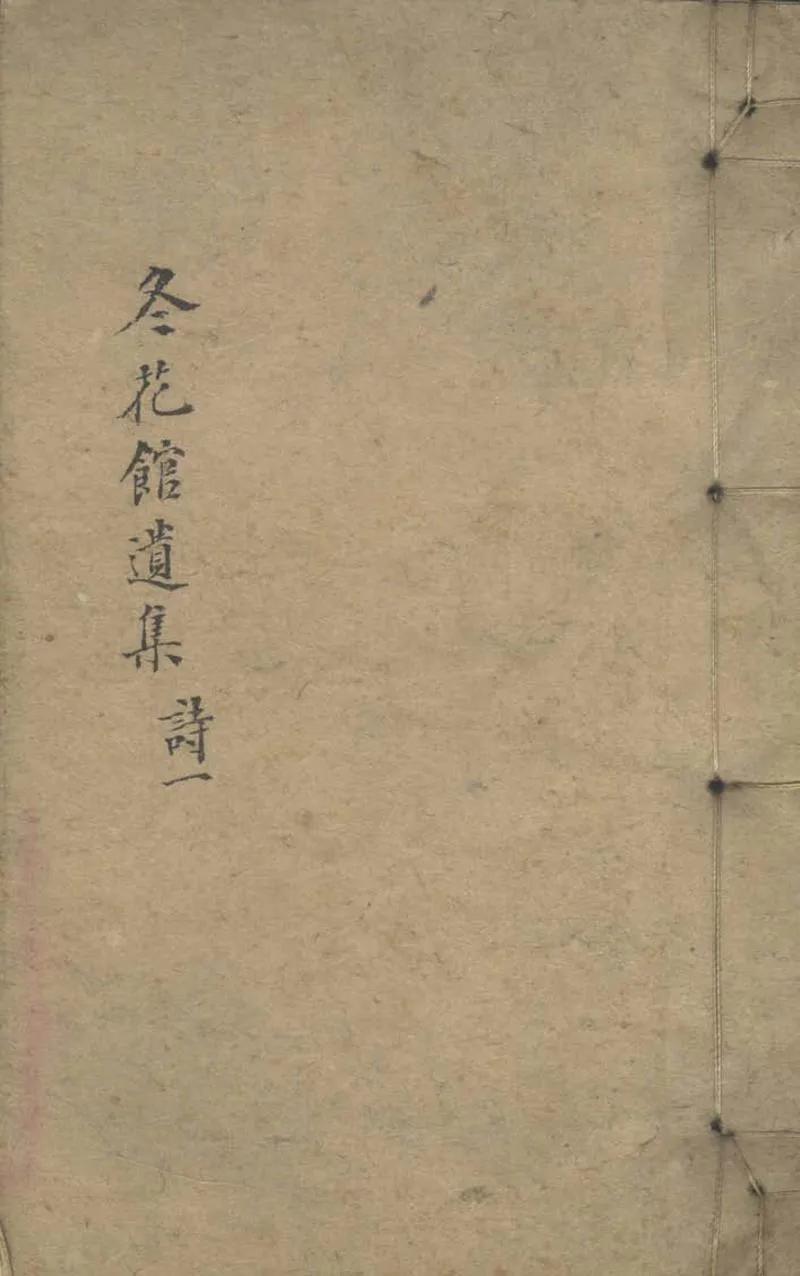 冬花館遺集
詩一